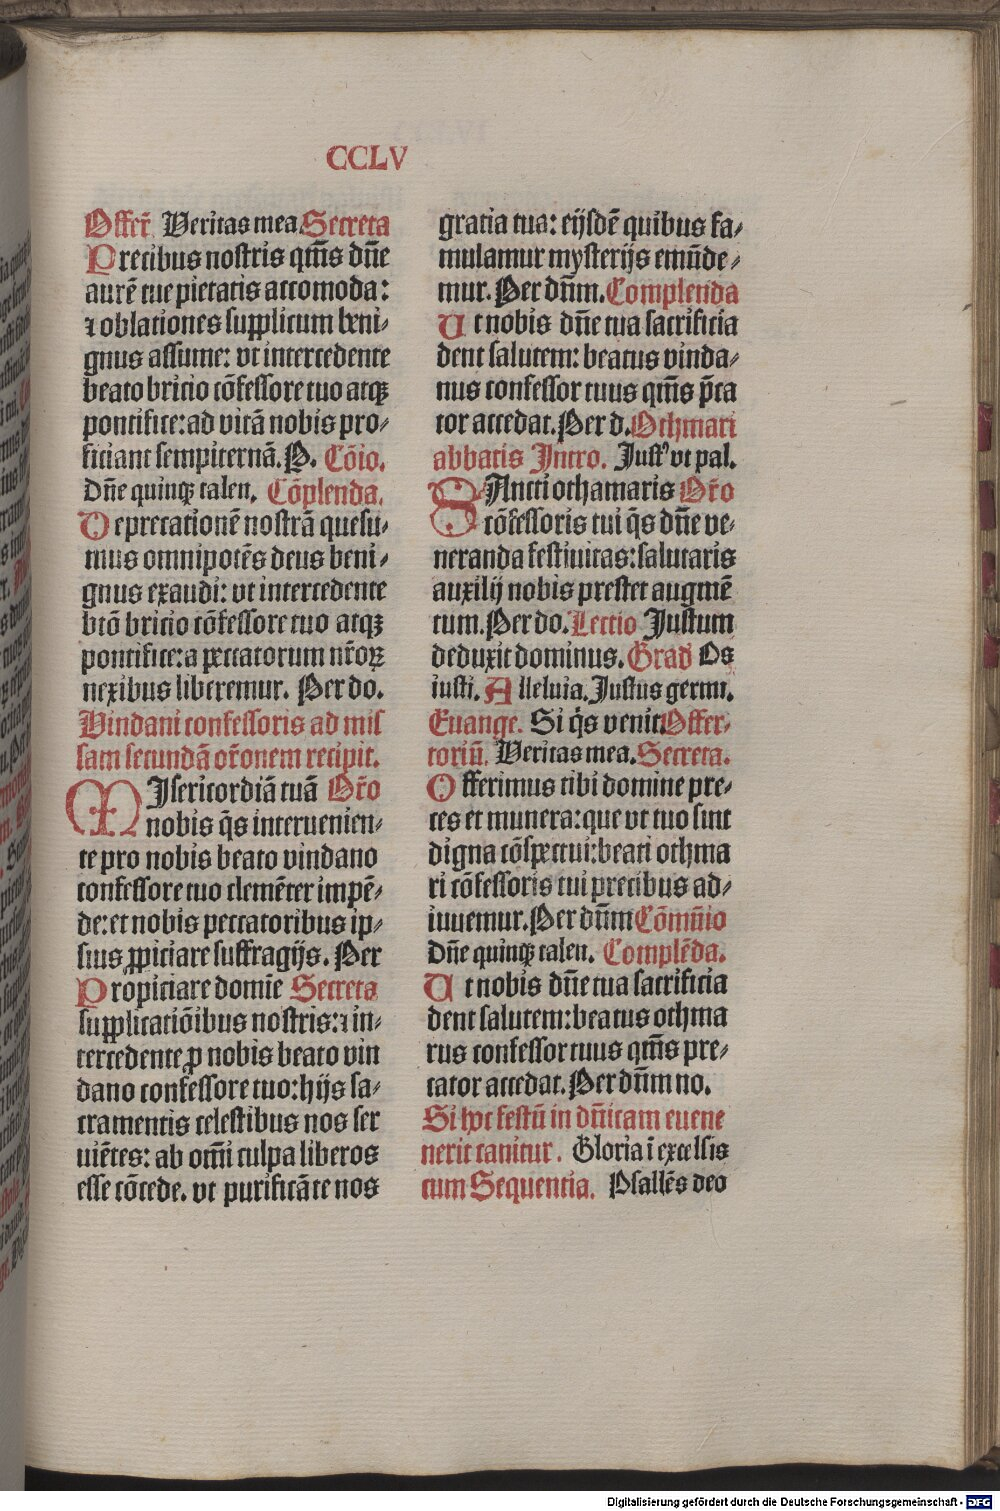 CCLV
Offer̄ Veritas mea Secreta
Precibus nostris qm̄s dn̄e
aurē tue pietatis accomoda:
⁊ oblationes supplicum beni⸗
gnus assume: vt intercedente
beato bricio cōfessore tuo atqꝫ
pontifice: ad vitā nobis pro⸗
ficiant sempiternā. P. Cōio.
Dn̄e quinqꝫ talen. Cōplenda.
Deprecationē nostrā quesu⸗
mus omnipotēs deus beni⸗
gnus exaudi: vt intercedente
btō bricio cōfessore tuo atqꝫ
pontifice: a peccatorum nr̄oꝝ
nexibus liberemur. Per do.
Vindani confessoris ad mis
sam secundā or̄onem recipit.
MIsericordiā tuā Or̄o
nobis q̄s intervenien⸗
te pro nobis beato vindano
confessore tuo clemēter impē⸗
de: et nobis peccatoribus ip⸗
sius ꝓpiciare suffragijs. Per
Propiciare domīe Secreta
supplicatiōibus nostris: ⁊ in⸗
tercedente ꝓ nobis beato vin
dano confessore tuo: hijs sa⸗
cramentis celestibus nos ser
uiētes: ab om̄i culpa liberos
esse cōcede. vt purificāte nos
gratia tua: eijsdē quibus fa⸗
mulamur mysterijs emūde⸗
mur. Per dn̄m. Complenda
Ut nobis dn̄e tua sacrificia
dent salutem: beatus vinda⸗
nus confessor tuus qm̄s p̄ca
tor accedat. Per d. Othmari
abbatis Intro. Justꝰ vt pal.
SAncti othamaris Or̄o
cōfessoris tui q̄s dn̄e ve⸗
neranda festiuitas: salutaris
auxilij nobis prestet augmē
tum. Per do. Lectio Justum
deduxit dominus. Grad Os
iusti. Alleluia. Justus germi.
Euange. Si q̄s venit. Offer⸗
toriū. Veritas mea. Secreta.
Offerimus tibi domine pre⸗
ces et munera: que vt tuo sint
digna cōspectui: beati othma
ri cōfessoris tui precibus ad⸗
iuuemur. Per dn̄m Cōmūio
Dn̄e quinqꝫ talen. Complēda.
Ut nobis dn̄e tua sacrificia
dent salutem: beatus othma
rus confessor tuus qm̄s pre⸗
cator accedat. Per dn̄m no.
Si hoc festū in dn̄icam euene
nerit canitur. Gloria ī excelsis
cum Sequentia. Psallēs deo
Digitalisierung gefördert durch die Deutsche Forschungsgemeinschaft - DFG